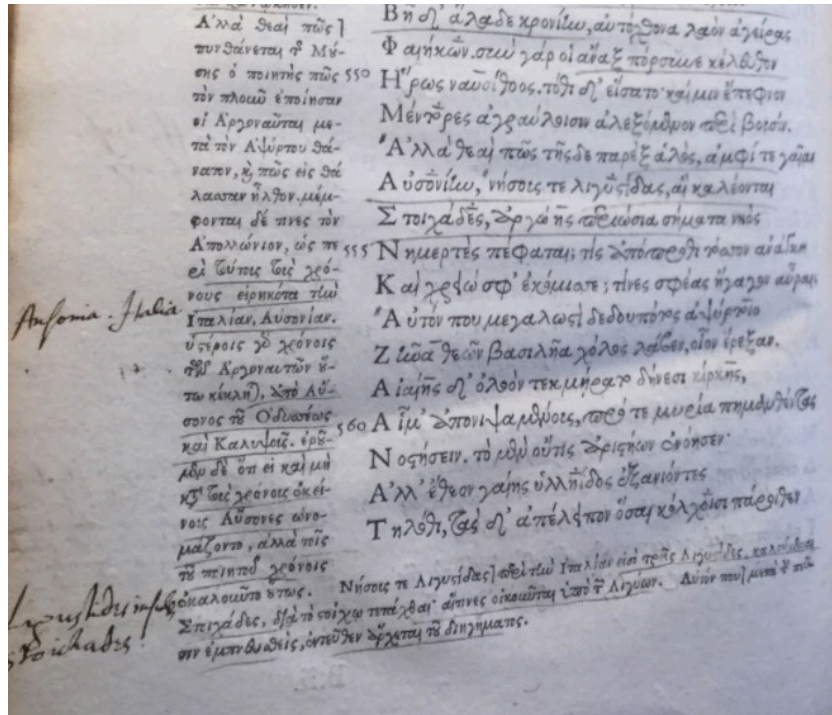 Ἀλλὰ θεαὶ πῶς]
πυνθάνεται τῆς Μού-
σης ὁ ποιητὴς πῶς
τὸν πλοῦν ἐποίησαν
οἱ Ἀργοναῦται με-
τὰ τὸν Ἀψύρτου θά-
νατον, καὶ πῶς εἰς θά
λασσαν ἦλθον. μέμ-
φονται δέ τινες τὸν
Ἀπολλώνιον, ὡς πε
ρὶ τούτοις τοῖς χρό-
νοις εἰρηκότα τὴν
Ἰταλίαν, Αὐσονίαν.
ὑστέροις γὰρ χρόνοις
τῶν Ἀργοναυτῶν οὕ-
τω κέκληται, ἀπὸ Αὔ-
σονος τοῦ Ὀδυσσέως
καὶ Καλυψοῦς. ἐροῦ-
μεν δὲ ὅτι εἰ καὶ μὴ
κατὰ τοὺς χρόνοις ἐκεί-
νοις Αὔσονες ὠνο-
μάζοντο, ἀλλὰ τοῖς
τοῦ ποιητοῦ χρόνοις
ἐκαλοῦντο οὕτως.
Ausonia. Italia
Ligustides insulę
Stoichades.
Βῆ δ' ἅλαδε κρονίην, αὐτόχθονα λαὸν ἀγείρας
Φαιήκων. σὺν γάρ οἱ ἄναξ πόρσυνε κέλευθον
550 Ἥρως ναυσίθοος. τόθι δ' εἴσατο· καί μιν ἔπεφνον
Μέντορες ἀγραύλοισιν ἀλεξόμενον περὶ βουσίν.
Ἀλλὰ θεαὶ πῶς τῆσδε παρὲξ ἁλός, ἀμφί τε γαῖαν
Αὐσονίην, νήσοις τε λιγυστίδας, αἳ καλέονται
Στοιχάδες, ἀργώης περιώσια σήματα νηὸς
555 Νημερτὲς πέφαται; τίς ἀπόπροθι τόσσον ἀνάγκη
Καὶ χρειώ σφ' ἐκόμισσε; τίνες σφέας ἤγαγον αὖραι;
Αὐτόν που μεγαλωστὶ δεδουπότος ἀψύρτοιο
Ζῆνα θεῶν βασιλῆα χόλος λάβεν, οἷον ἔρεξαν.
Αἰαίης δ' ὀλοὸν τεκμήρατο δήνεσι κίρκης,
560 Αἷμ' ἀπονιψαμένους, πρό τε μυρία πημανθέντας
Νοστήσειν. τὸ μὲν οὔτις ἀριστήων ἐνόησεν·
Ἀλλ' ἔθεον γαίης ὑλληίδος ἐξανιόντες
Τηλόθι, τὰς δ' ἀπέλειπον ὅσαι κόλχοισι πάροιθεν
Νήσοις τε Λιγυστίδας] περὶ τὴν Ἰταλίαν εἰσὶ τρεῖς Λιγυστίδες, καλούμεναι
Στοιχάδες, διὰ τὸ στοίχῳ τετάχθαι· αἵτινες οἰκοῦνται ὑπὸ τῶν Λιγύων. Αὐτόν που] μετὰ τὴν πεῦ
σιν ἐμπνευσθεὶς, ἐντεῦθεν ἄρχεται τοῦ διηγήματος.